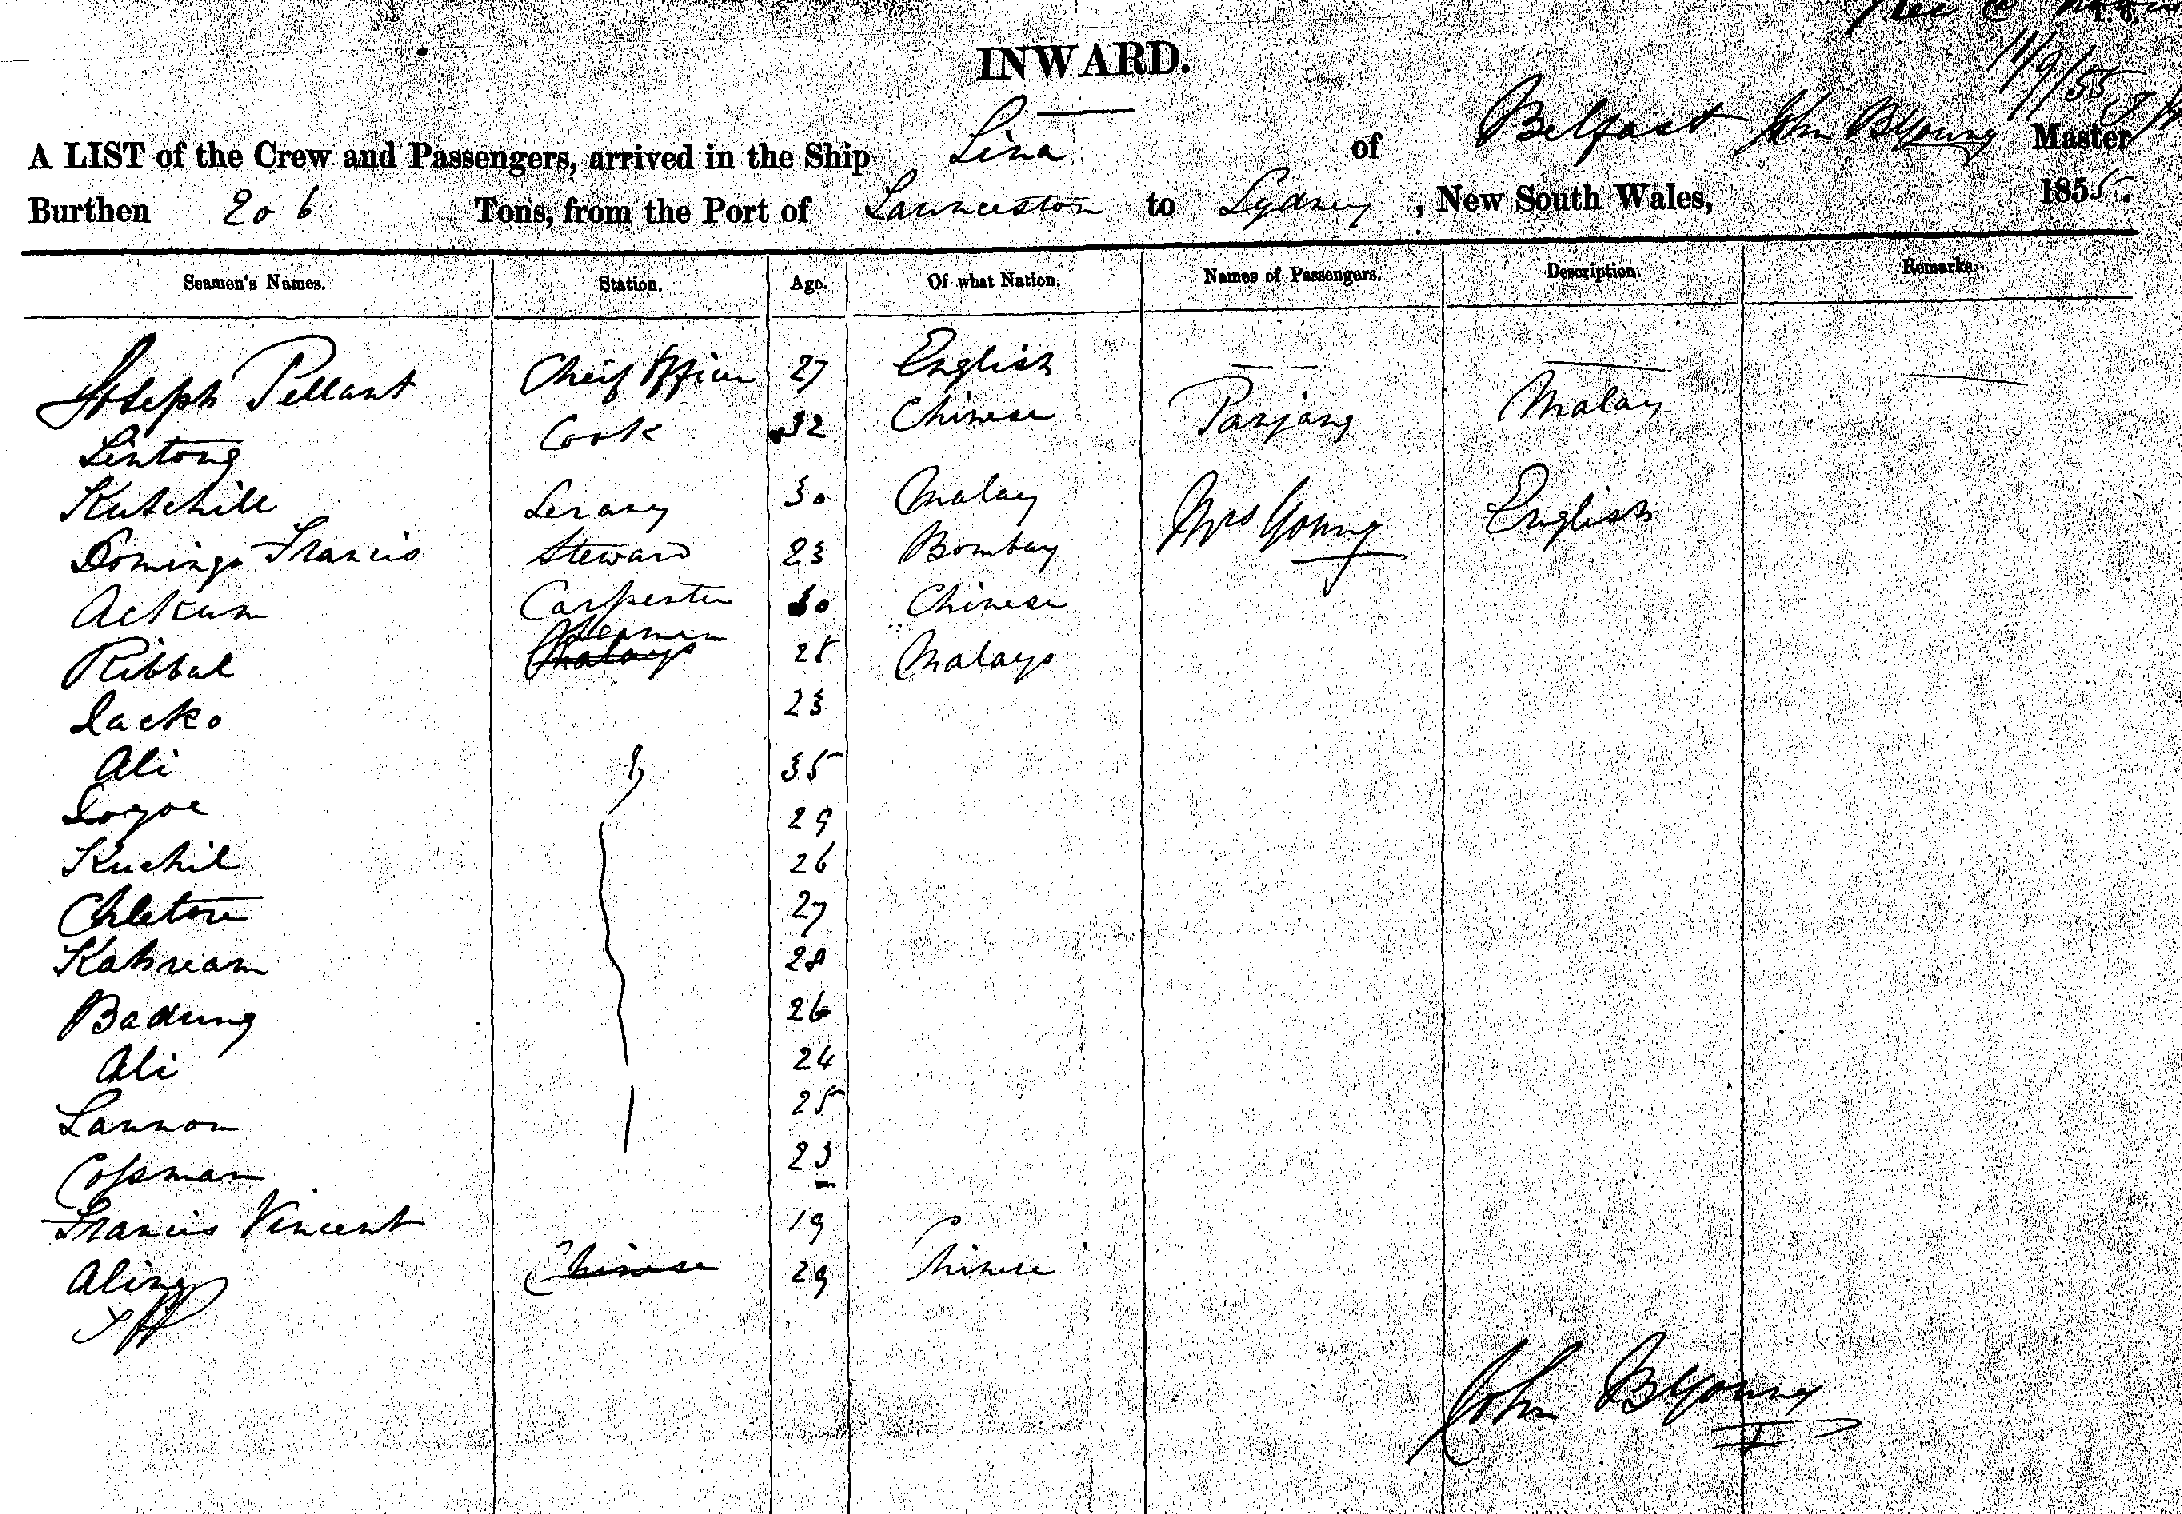 INWARD.
11/9/55
A LIST of the Crew and Passengers, arrived in the Ship Lina of Belfast John B Young Master
Burthen 206 Tons, from the Port of Launceston to Sydney, New South Wales, 1855.
Seamen's Names. Station. Age. Of what Nation. Names of Passengers. Description. Remarks.
Joseph Pellant Cheif Officer 27 English — — —
Lintong Cook 32 Chinese Panjang Malay
Kutchill Serang 30 Malay Mrs Young English
Domingo Francis Steward 23 Bombay
Ackum Carpenter 30 Chinese
Ribbal Malays 28 Malays
Jacko 23
Ali 35
29
Kuchil 26
27
28
Badung 26
Ali 24
Lannon 25
Cossman 23
Francis Vincent 19
Aling Chinese 29 Chinese
John B Young